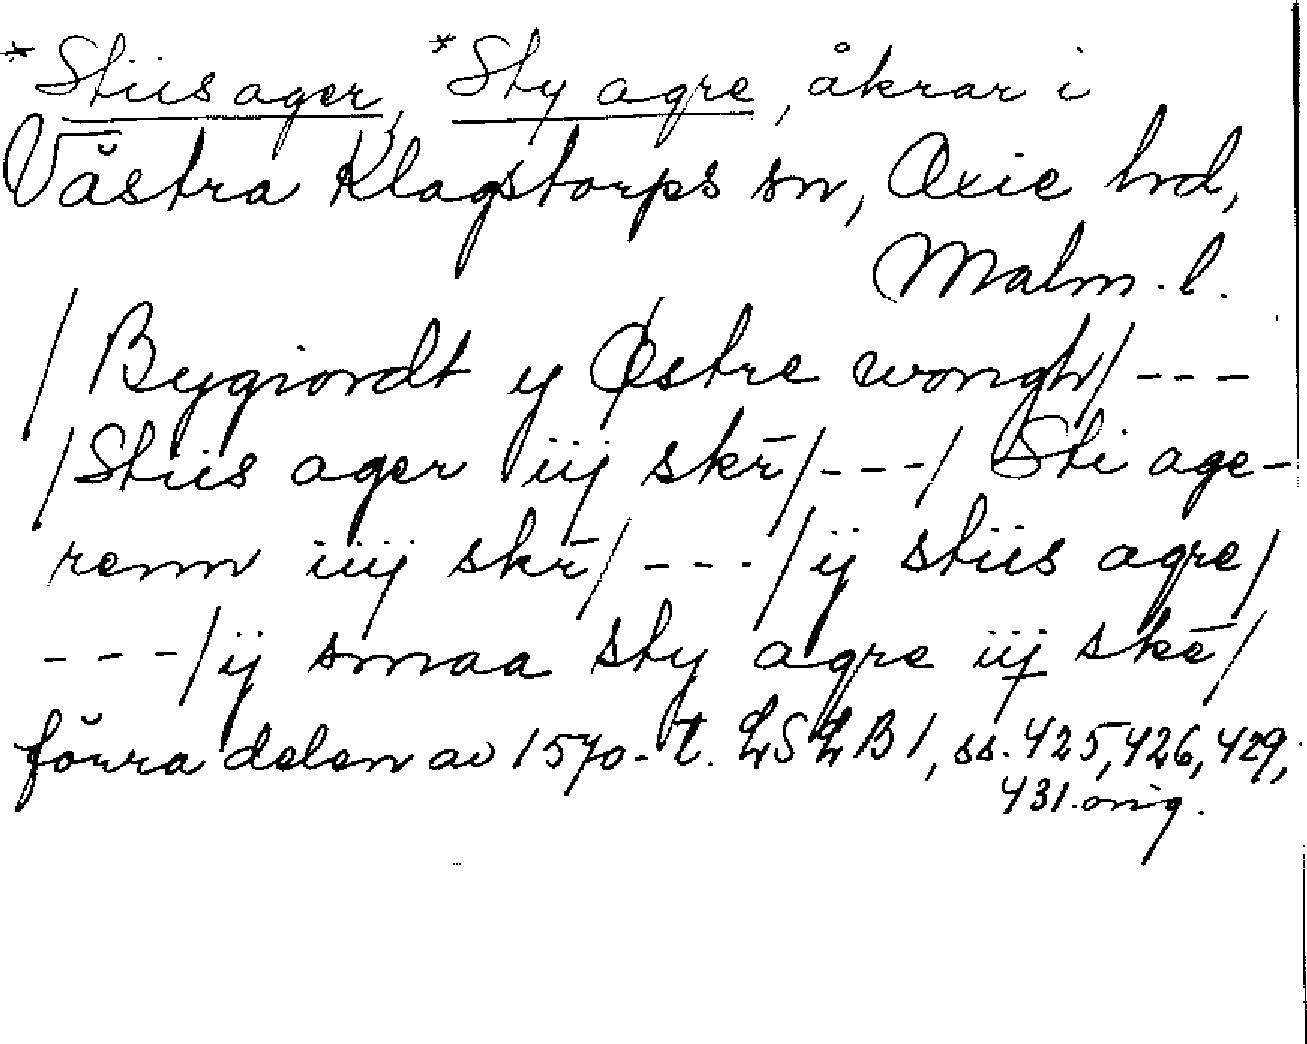 *Stiis ager, *Sty agre, åkrar i
Västra Klagstorps sn, Oxie hd,
Malm. l.
/Bygiordt y Østre wongh/---
/Stiis ager iij skr̄/---/ Sti age-
renn iiij skr̄/---/ij stiis agre/
---/ij smaa sty agre iij skē/
förra delen av 1570-t. LSLB1, ss. 425, 426, 429,
431 orig.